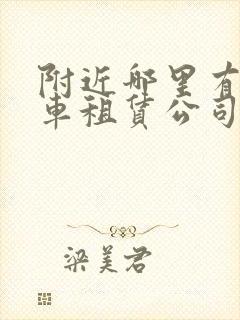 附近哪里有
车租赁公司
梁美君